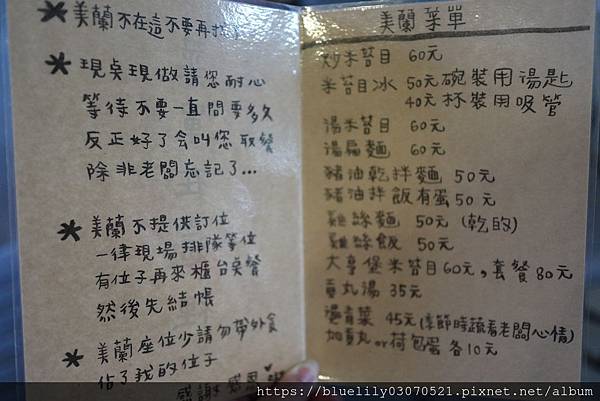 * 美蘭不在這不要再找
* 現点現做請您耐心
等待不要一直問要多久
反正好了会叫您取餐
除非老闆忘記了...
* 美蘭不提供訂位
一律現場排隊等位
有位子再來櫃台点餐
然後先結帳
* 美蘭座位少請勿帶外食
佔了我的位子
感謝
美蘭菜單
炒米苔目 60元
米苔目冰 50元碗裝用湯匙
40元杯裝用吸管
湯米苔目 60元
湯扁麵 60元
豬油乾拌麵 50元
豬油拌飯有蛋50元
雞絲麵 50元 (乾的)
雞絲飯 50元
大亨堡米苔目60元，套餐80元
貢丸湯 35元
燙青菜 45元(季節時蔬看老闆心情)
加貢丸or荷包蛋 各10元
https://bluelily03070521.pixnet.net/album